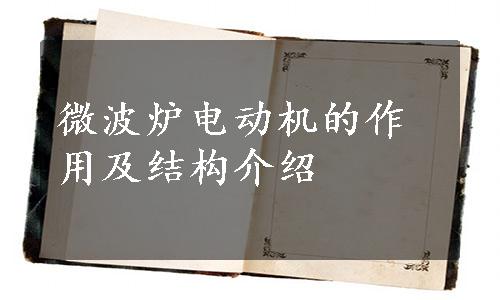 微波炉电动机的作
用及结构介绍